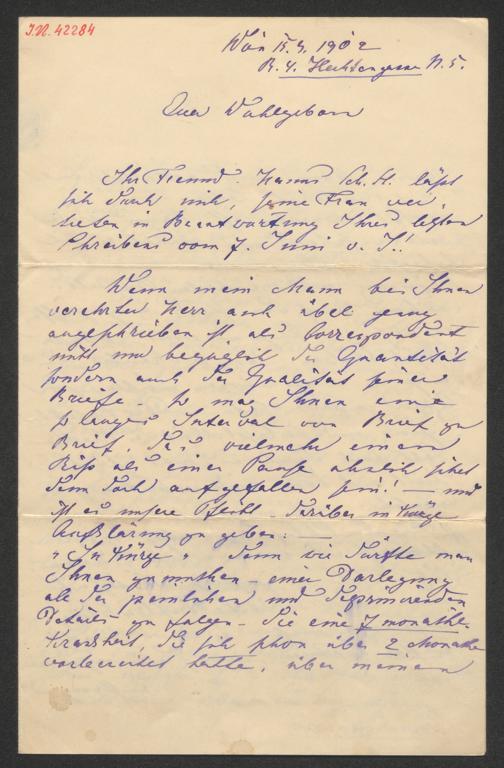 I.N. 42284
Wien 15.4. 1902
B. 4. Hechtengasse N. 5.
Euer Wohlgeboren
Ihr Freund Hanns Sch. H. läßt
sich durch mich, seine Frau ver-
treten in Beantwortung Ihres letzten
Schreibens vom 7. Juni v. J.!
Wenn mein Mann bei Ihnen
verehrter Herr auch übel genug
angeschrieben ist als Correspondent
nicht nur bezüglich der Quantität
sondern auch der Qualität seiner
Briefe – so mag Ihnen ein
so langes Interval von Brief zu
Brief, das vielmehr einem
Riß als einer Pause ähnlich sieht
denn doch aufgefallen sein! – und
ist es unsere Pflicht darüber in Kürze
Aufklärung zu geben: –
"In Kürze" denn wie dürfte man
Ihnen zumuthen – einer Darlegung
all der peinlichen und deprimirenden
Details zu folgen – die eine 7 monatl.
Krankheit, die sich schon über 2 Monate
vorbereitet hatte, über meinen